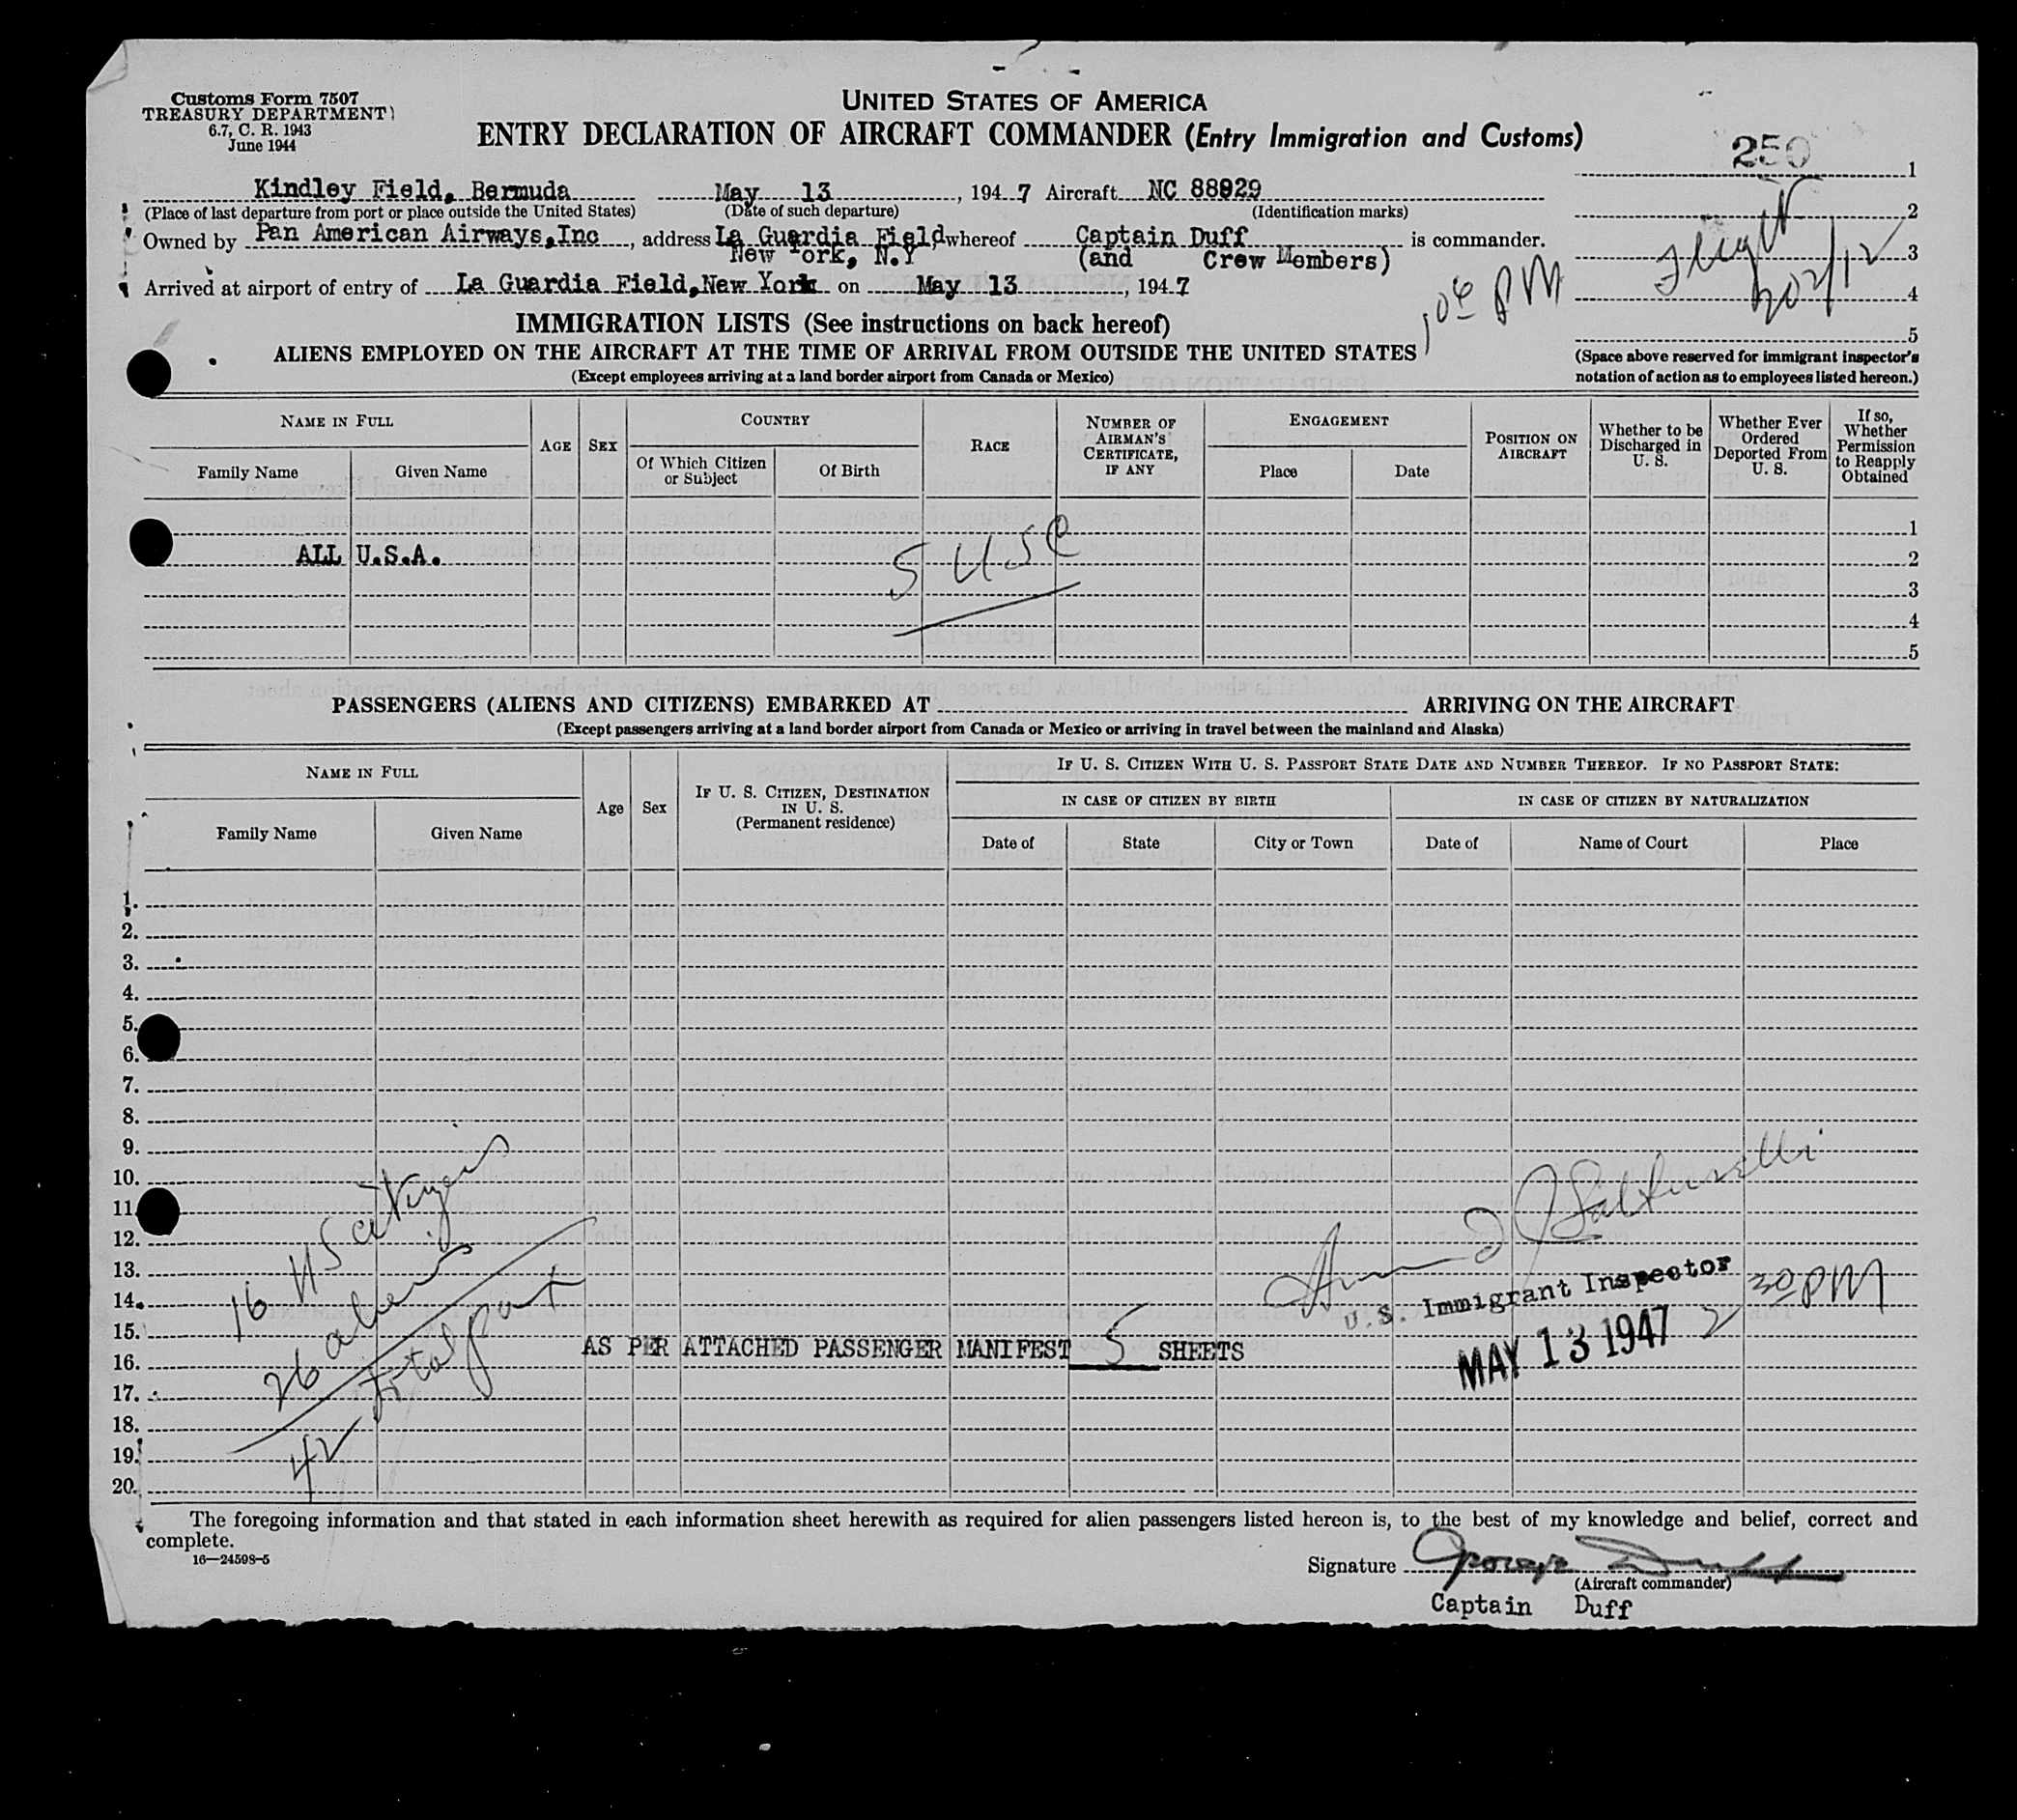 Customs Form 7507
TREASURY DEPARTMENT
6.7, C. R. 1943
June 1944
UNITED STATES OF AMERICA
ENTRY DECLARATION OF AIRCRAFT COMMANDER (Entry Immigration and Customs)
250
Kindley Field, Bermuda May 13, 1947 Aircraft NC 88929
(Place of last departure from port or place outside the United States) (Date of such departure) (Identification marks)
Owned by Pan American Airways, Inc, address La Guardia Field whereof Captain Duff is commander.
New York, N.Y (and Crew Members)
Arrived at airport of entry of La Guardia Field, New York on May 13, 1947
1
2
3
4
5
Flight
202/12
106 PM
(Space above reserved for immigrant inspector's
notation of action as to employees listed hereon.)
IMMIGRATION LISTS (See instructions on back hereof)
ALIENS EMPLOYED ON THE AIRCRAFT AT THE TIME OF ARRIVAL FROM OUTSIDE THE UNITED STATES
(Except employees arriving at a land border airport from Canada or Mexico)
NAME IN FULL
Family Name
Given Name
AGE
SEX
COUNTRY
Of Which Citizen
or Subject
Of Birth
RACE
NUMBER OF
AIRMAN'S
CERTIFICATE,
IF ANY
ENGAGEMENT
Place
Date
POSITION ON
AIRCRAFT
Whether to be
Discharged in
U. S.
Whether Ever
Ordered
Deported From
U. S.
If so,
Whether
Permission
to Reapply
Obtained
1
ALL U.S.A. 2
5 USC
3
4
5
PASSENGERS (ALIENS AND CITIZENS) EMBARKED AT ARRIVING ON THE AIRCRAFT
(Except passengers arriving at a land border airport from Canada or Mexico or arriving in travel between the mainland and Alaska)
NAME IN FULL
Family Name
Given Name
Age
Sex
IF U. S. CITIZEN, DESTINATION
IN U. S.
(Permanent residence)
IF U. S. CITIZEN WITH U. S. PASSPORT STATE DATE AND NUMBER THEREOF. IF NO PASSPORT STATE:
IN CASE OF CITIZEN BY BIRTH
Date of
State
City or Town
IN CASE OF CITIZEN BY NATURALIZATION
Date of
Name of Court
Place
1.
2.
3.
4.
5.
6.
7.
8.
9.
10.
11.
12.
13.
14.
15.
16.
17.
18.
19.
20.
16 US citizens
26 aliens
42 total pax
AS PER ATTACHED PASSENGER MANIFEST 5 SHEETS
U.S. Immigrant Inspector
MAY 13 1947
2 30 PM
The foregoing information and that stated in each information sheet herewith as required for alien passengers listed hereon is, to the best of my knowledge and belief, correct and
complete.
16—24598-5
Signature George Duff
(Aircraft commander)
Captain Duff